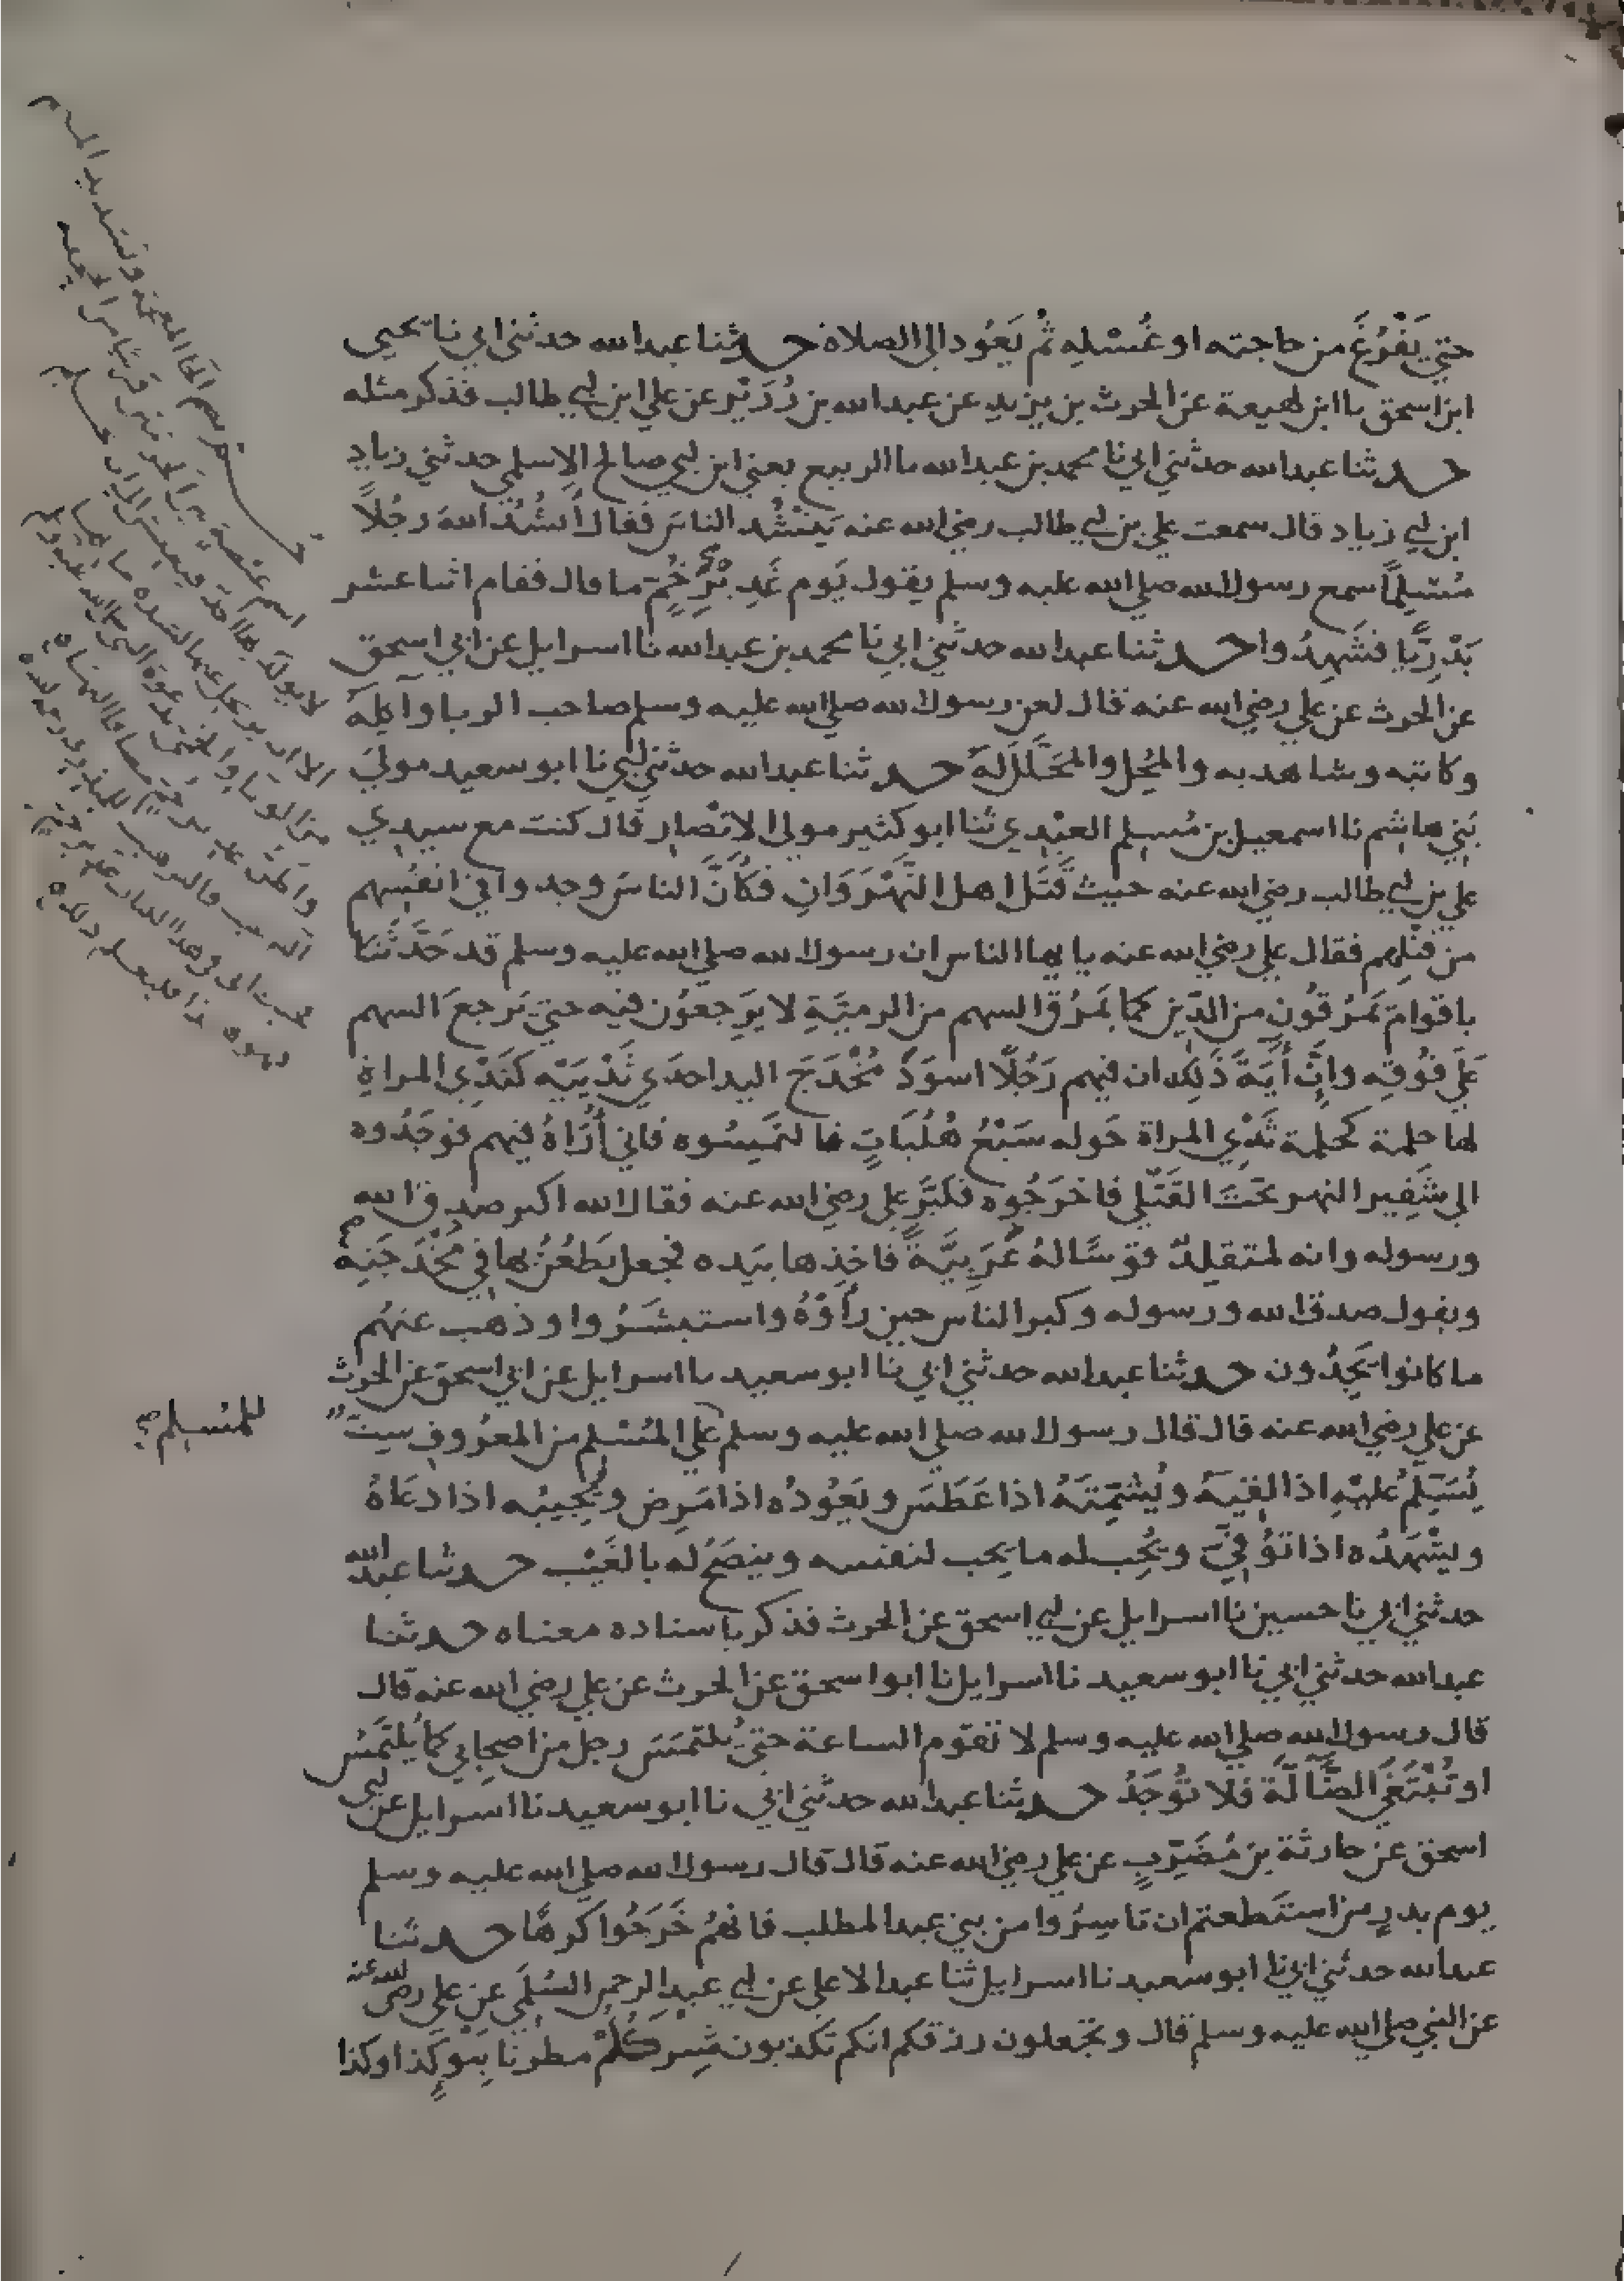 حتي يَفْرُغَ من حاجته او غُسْلِهِ ثُم يَعُود الى الصلاة حدثنا عبد الله حدثني ابي نا يحيى
ابن اسحق نا ابن لهيعة عن الحرث بن يزيد عن عبد الله بن زُرَيْر عن علي ابن ابي طالب فذكر مثله
حدثنا عبد الله حدثني ابي نا محمد بن عبد الله نا الربيع يعني ابن ابي صالح الاسلمي حدثني زياد
ابن ابي زياد قال سمعت علي بن ابي طالب رضي الله عنه يَنْشُد الناسَ فقال أَنشُدُ اللهَ رجُلاً
مُسْلِماً سمع رسول الله صلى الله عليه وسلم يقول يَوم غَدِيْرِ خُمٍّ ما قال فقام اثنا عشر
بَدْرِيًّا فشَهِدُوا حدثنا عبد الله حدثني ابي نا محمد بن عبد الله نا اسرايل عن ابي اسحق
عن الحرث عن علي رضي الله عنه قال لعن رسول الله صلى الله عليه وسلم صاحب الربا وآكِلَهُ
وكاتبه وشاهديه والمُحِل والمُحَلَّلَ لَهُ حدثنا عبد الله حدثني ابي نا ابو سعيد مولي
بَني هاشم نا اسمعيل بن مُسلِم العبْدِي ثنا ابو كثير مولى الانصار قال كنت مع سيدي
علي بن ابي طالب رضي الله عنه حيث قُتِل اهل النَّهْرَوَانِ فكأَنَّ الناسَ وجدوا في انفُسهم
من قتلهم فقال علي رضي الله عنه يا يها الناس ان رسول الله صلى الله عليه وسلم قد حَدَّثَنَا
باقوام يَمرُقُون من الدّين كما يَمرُق السهم من الرميَّةِ لا يَرجعُون فيه حتي يَرجعَ السهم
عَلَي فُوقِه وانَّ أَيَةَ ذَلِك ان فيهم رَجُلًا اسوَدَ مُخْدَجَ اليد احدَي ثَدْيَيْه كثَدْي المراةِ
لها حلمة كحلمة ثَدْيِ المراة حَوله سَبْعُ هُلُبَاتٍ فالتَمِسُوه فاني أُرَاهُ فيهم فوَجَدُوه
الى شَفِير النهر تحتَ القَتْلي فاخرَجُوه فكَبَّرَ علي رضي الله عنه فقال الله اكبر صدق الله
ورسوله وانه لمتقلِدٌ قوسًا لهُ عَرَبِيَّةً فاخذها بيَده فجعل يَطعُنُ بها في مُخْدَجَتِهِ
ويقول صدق الله ورسوله وكبر الناس حين رأَوْهُ واستبشَرُوا وذهب عنهُم
ما كانوا يَجِدُون حدثنا عبد الله حدثني ابي نا ابو سعيد نا اسرايل عن ابي اسحق عن الحرث
عن علي رضي الله عنه قال قال رسول الله صلى الله عليه وسلم علي المُسْلِم من المعرُوفِ سِتٌّ
للمُسلِم صح
يُسَلِّمُ عليْهِ اذا لقِيَهُ ويُشمِّتُهُ اذا عَطَسَ ويَعُودُه اذا مَرِضَ ويُجِيبُه اذا دعَاهُ
ويشْهَدُه اذا تُوُفِّيَ ويُحِب له ما يحب لنفسه وينصَحُ له بالغَيْب حدثنا عبد الله
حدثني ابي نا حسين نا اسرايل عن ابي اسحق عن الحرث فذكر باسناده معناه حدثنا
عبد الله حدثني ابي نا ابو سعيد نا اسرايل نا ابو اسحق عن الحرث عن علي رضي الله عنه قال
قال رسول الله صلى الله عليه وسلم لا تقوم الساعة حتي يُلتمَسَ رجل من اصحابي كما يُلتَمَسُ
او تُبْتَغَي الضَّالَّة فلا تُوجَدُ حدثنا عبد الله حدثني ابي نا ابو سعيد نا اسرايل عن ابي
اسحق عن حارثة بن مُضَرِّبٍ عن علي رضي الله عنه قال قال رسول الله صلى الله عليه وسلم
يوم بدرٍ من استطعتم ان تاسِرُوا من بني عبد المطلب فانهُمْ خَرَجُوا كَرهًا حدثنا
عبد الله حدثني ابي نا ابو سعيد نا اسرايل ثنا عبد الاعلي عن ابي عبد الرحمن السُلَمي عن علي رضي الله عنه
عن النبي صلى الله عليه وسلم قال وتجعلون رزقكم انكم تكذبون شِرْكُكُمْ مطرنا بِنَوْءِ كذا وكذا